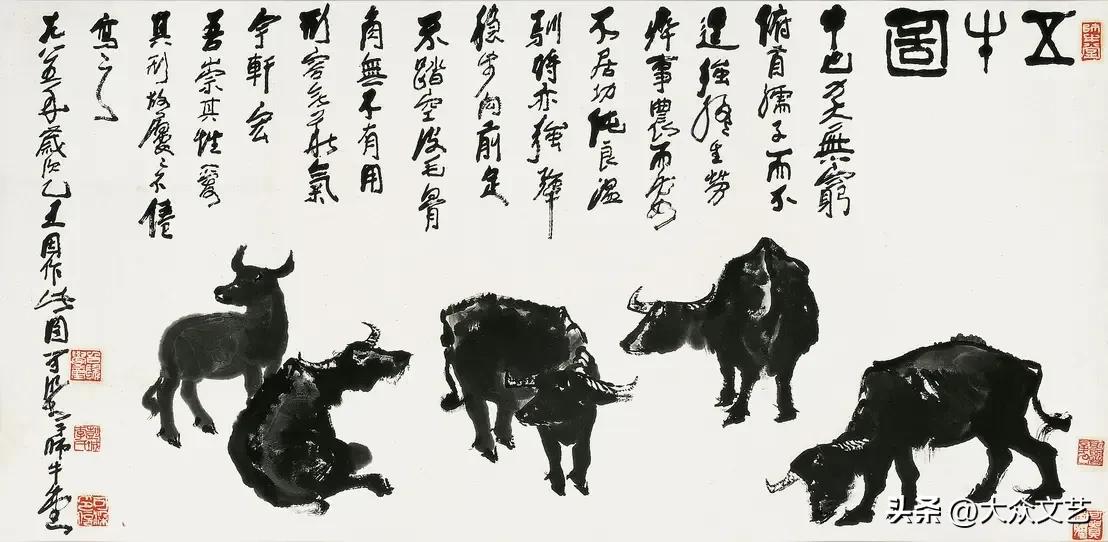 五牛圖
牛也力大無窮
俯首孺子而不
逞强終生勞
瘁事農而安
不居功純良温
馴時亦强犟
穩步向前足
不踏空皮毛骨
角無不有用
形容無華氣
宇軒宏
吾崇其性愛
其形故屢〻不倦
寫之
一九八五年歲次乙丑因作此圖可染於師牛堂
師牛堂
头条 @大众文艺